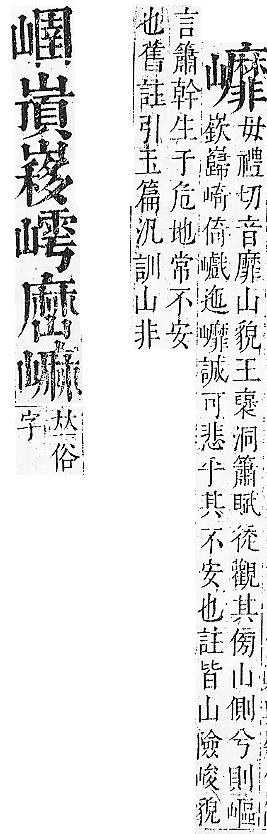 㠧毋禮切音靡山貌王襃洞簫賦徒觀其傍山側兮則嶇
嶔巋崎倚巇迤㠧誠可悲乎其不安也註皆山險峻貌
言簫幹生于危地常不安
也舊註引玉篇汎訓山非
嵏嶀
竝俗
字